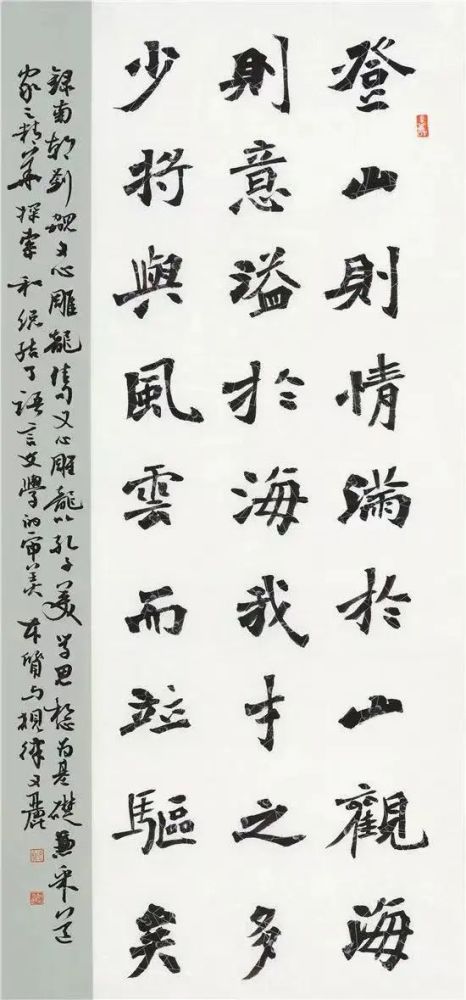 登山則情滿於山觀海
則意溢於海我才之多
少將與風雲而竝驅矣
錄南朝劉勰文心雕龍佳句文心雕龍以孔子美学思想为基礎兼采道
家之精華探索和總结了語言文學的审美本質与規律文麗